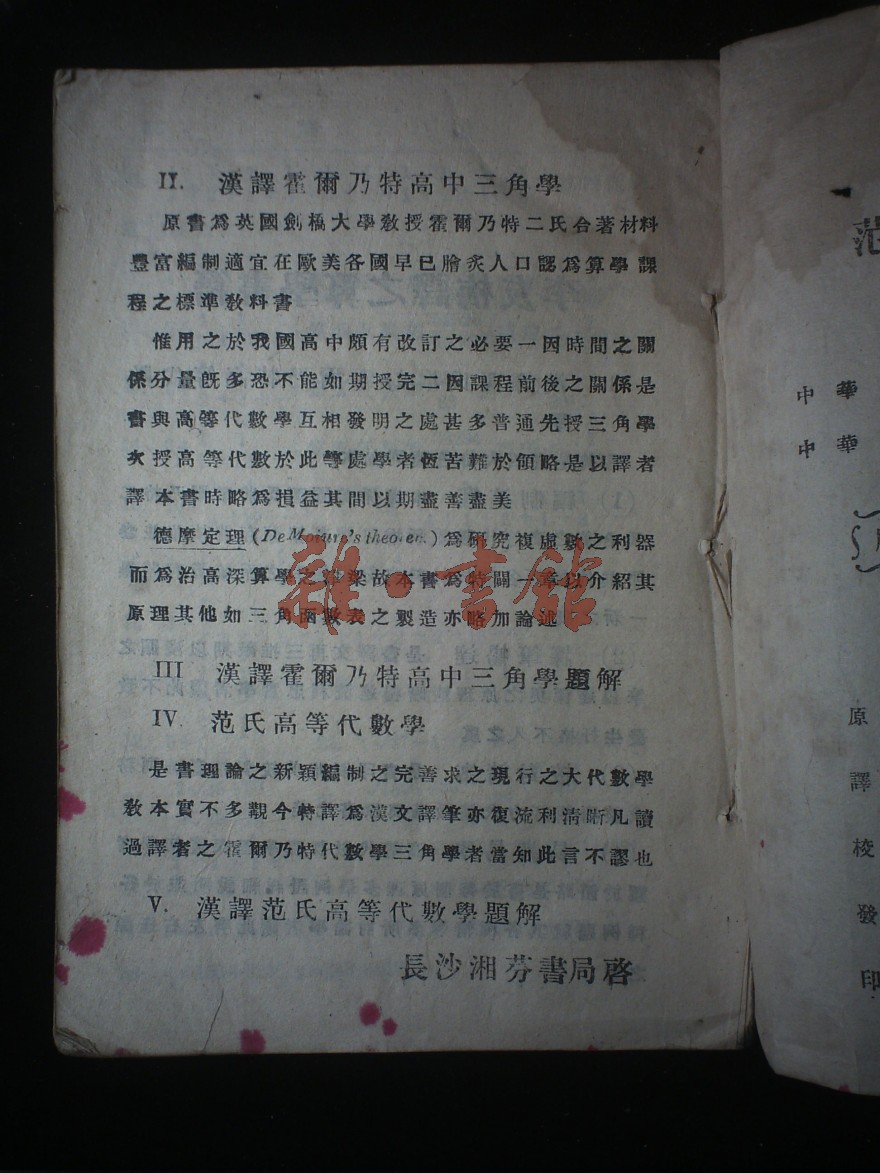 II. 漢譯霍爾乃特高中三角學
原書爲英國劍橋大學敎授霍爾乃特二氏合著材料
豐富編制適宜在歐美各國早已膾炙人口認爲算學課
程之標準敎科書
惟用之於我國高中頗有改訂之必要一因時間之關
係分量旣多恐不能如期授完二因課程前後之關係是
書與高等代數學互相發明之處甚多普通先授三角學
次授高等代數於此等處學者恆苦難於領略是以譯者
譯本書時略爲損益其間以期盡善盡美
德摩定理 (De 's theo em) 爲硏究複虛數之利器
而爲治高深算學之津梁故本書爲特闢一章以介紹其
原理其他如三角函數表之製造亦略加論述
雜·書館
III 漢譯霍爾乃特高中三角學題解
IV. 范氏高等代數學
是書理論之新穎編制之完善求之現行之大代數學
敎本實不多觀今特譯爲漢文譯筆亦復流利淸晰凡讀
過譯者之霍爾乃特代數學三角學者當知此言不謬也
V. 漢譯范氏高等代數學題解
長沙湘芬書局啓
范
中華
中華
原
譯
校
發
印